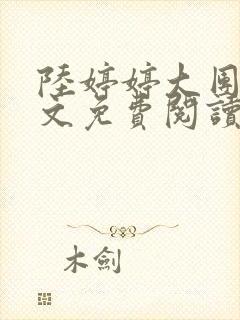 陸婷婷大團
文免費閱讀
木劍